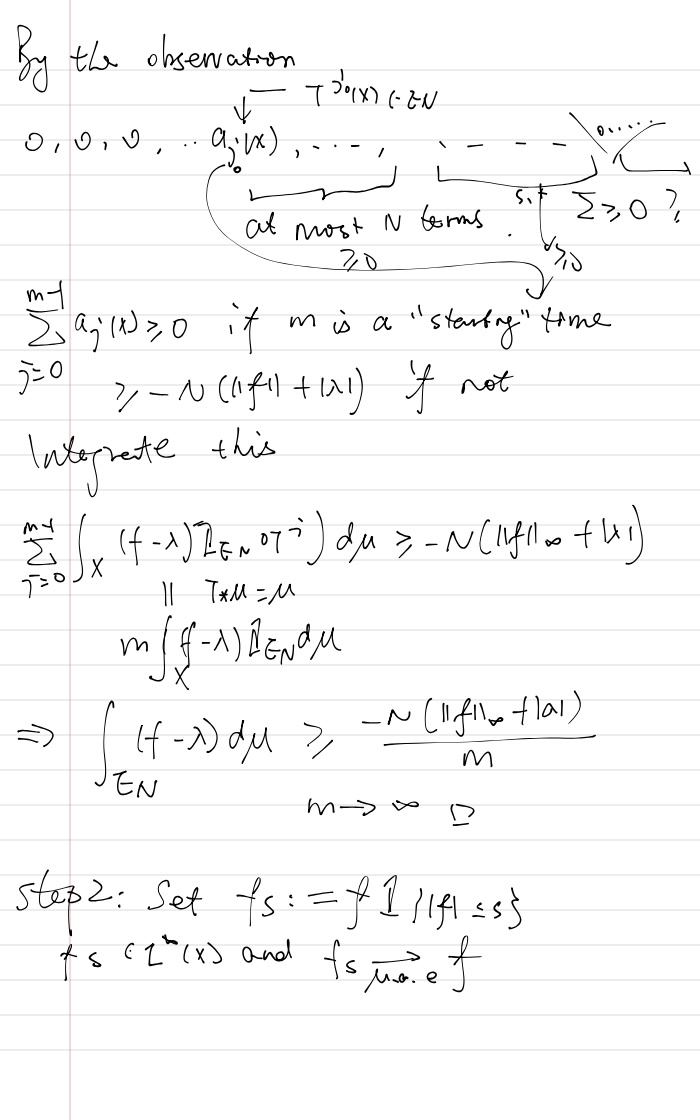 By the observation
T^{j_0}(x) ∈ E_N
0, 0, 0, ... a_{j_0}(x), ..., - - - - 0.....
at most N terms. s.t Σ ≥ 0 ?
≥0 ≥0
\sum_{j=0}^{m-1} a_j(x) ≥ 0 if m is a "starting" time
≥ -N(||f|| + |λ|) if not
Integrate this
\sum_{j=0}^{m-1} \int_X (f-λ) 𝟙_{E_N} ∘ T^j) dμ ≥ -N(||f||_∞ + |λ|)
|| T_*μ = μ
m \int_X (f-λ) 𝟙_{E_N} dμ
⇒ \int_{E_N} (f-λ) dμ ≥ \frac{-N(||f||_∞ + |λ|)}{m}
m → ∞ □
Step 2: Set f_s := f 𝟙{|f| ≤ s}
f_s ∈ L^∞(X) and f_s \xrightarrow{μ.a.e} f